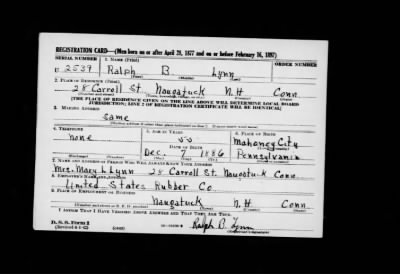 REGISTRATION CARD—(Men born on or after April 28, 1877 and on or before February 16, 1897)
SERIAL NUMBER 1. NAME (Print) ORDER NUMBER
U 2539 Ralph B. Lynn
(First) (Middle) (Last)
2. PLACE OF RESIDENCE (Print)
28 Carroll St. Naugatuck N.H Conn
(Number and street) (Town, township, village, or city) (County) (State)
[THE PLACE OF RESIDENCE GIVEN ON THE LINE ABOVE WILL DETERMINE LOCAL BOARD
JURISDICTION; LINE 2 OF REGISTRATION CERTIFICATE WILL BE IDENTICAL]
3. MAILING ADDRESS
Same
4. TELEPHONE 5. AGE IN YEARS 6. PLACE OF BIRTH
none 55 Mahanoy City
DATE OF BIRTH
Dec. 7 1886 Pennsylvania
(Mo.) (Day) (Yr.)
7. NAME AND ADDRESS OF PERSON WHO WILL ALWAYS KNOW YOUR ADDRESS
Mrs. Mary L Lynn 28 Carroll St. Naugatuck Conn
8. EMPLOYER'S NAME AND ADDRESS
United States Rubber Co.
9. PLACE OF EMPLOYMENT OR BUSINESS
Naugatuck N.H. Conn
I AFFIRM THAT I HAVE VERIFIED ABOVE ANSWERS AND THAT THEY ARE TRUE.
D. S. S. Form 1
(Revised 4-1-42) Ralph B. Lynn